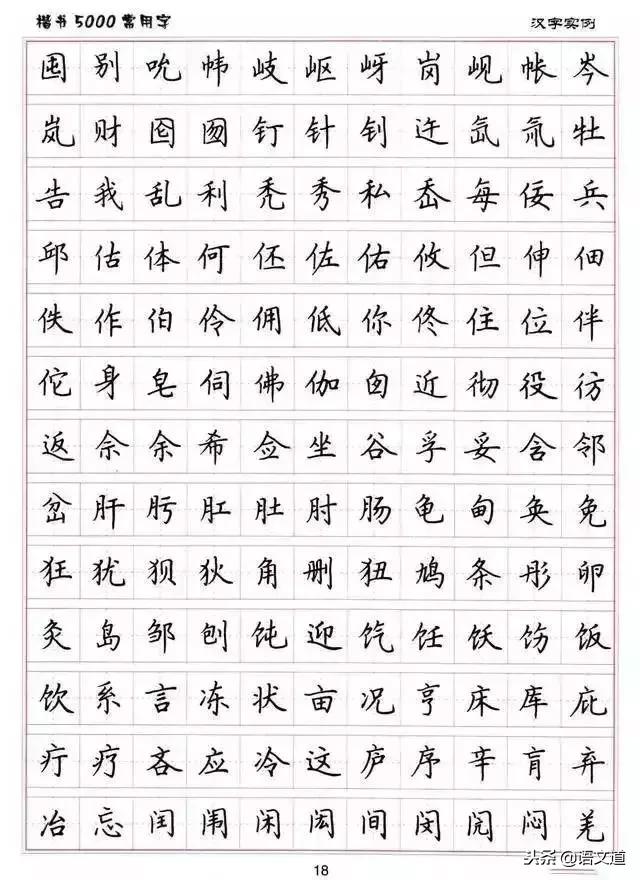 楷书5000常用字 汉字实例
囤别吮帏岐岖岈岗岘帐岑
岚财囵囫钉针钊迕氙氚牡
告我乱利秃秀私岙每佞兵
邱估体何伾佐佑攸但伸佃
佚作伯伶佣低你佟住位伴
佗身皂伺佛伽囱近彻役彷
返佘余希佥坐谷孚妥含邻
岔肝肟肛肚肘肠龟甸奂免
狂犹狈狄角删狃鸠条彤卵
灸岛邹刨饨迎饩饪饫饬饭
饮系言冻状亩况亨床库庇
疔疗吝应冷这庐序辛肓弃
冶忘闰闱闲闳间闵闶闷羌
18
头条@语文道